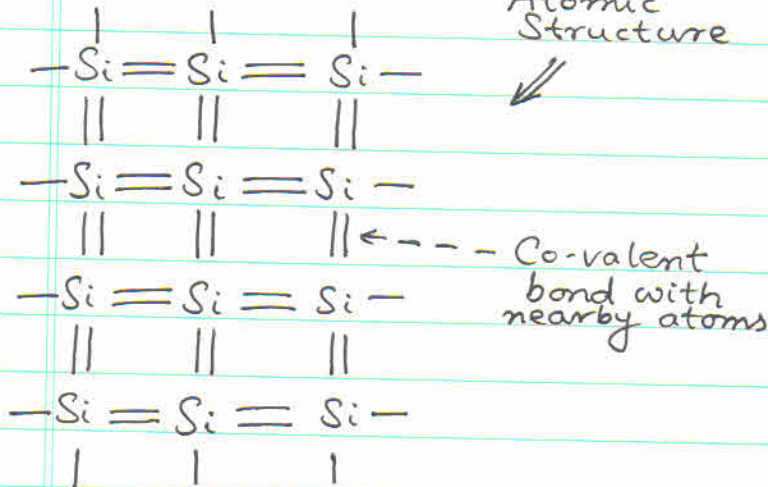 Atomic
Structure
—Si=Si=Si—
—Si=Si=Si—
Co-valent
bond with
nearby atoms
—Si=Si=Si—
—Si=Si=Si—